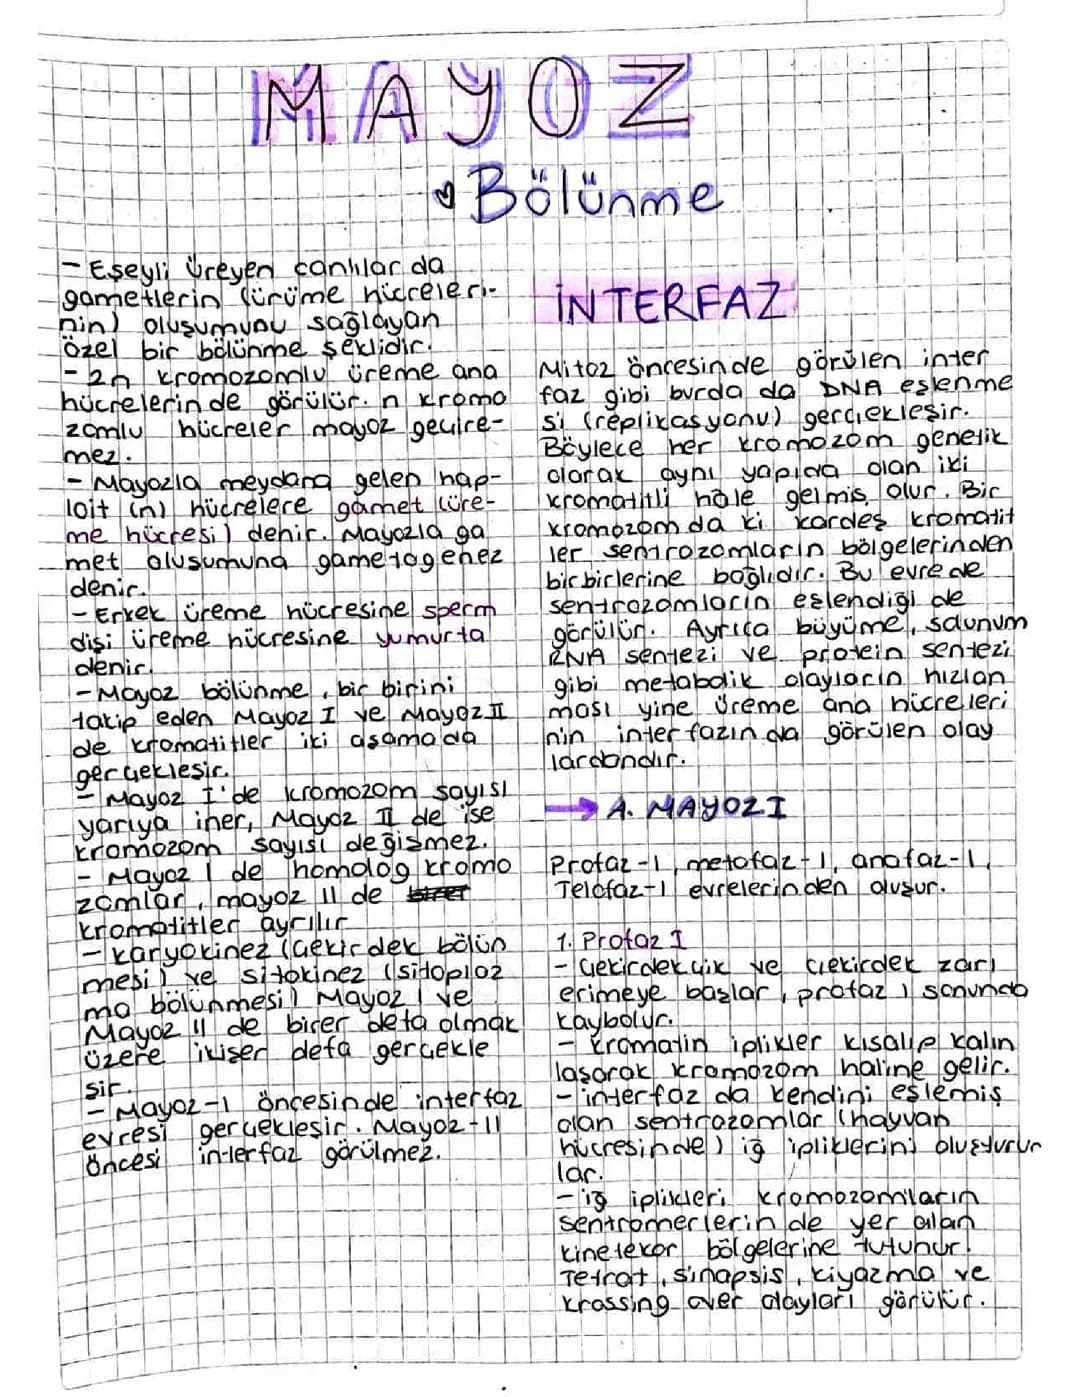 MAYOZ
Bölünme
- Eşeyli üreyen canlılar da
gametlerin (ürüme hücreleri-
nin) oluşumunu sağlayan
özel bir bölünme şeklidir.
- 2n kromozomlu üreme ana
hücrelerin de görülür. n kromo
zomlu hücreler mayoz geçire-
mez.
- Mayozla meydana gelen hap-
loit (n) hücrelere gamet (üre-
me hücresi) denir. Mayozla ga
met oluşumuna gametogenez
denir.
- Erkek üreme hücresine sperm
dişi üreme hücresine yumurta
denir.
- Mayoz bölünme, bir birini
takip eden Mayoz I ve Mayoz II
de kromatitler iki aşamada
gerçekleşir.
- Mayoz I'de kromozom sayısı
yarıya iner, Mayoz II de ise
kromozom sayısı değişmez.
- Mayoz I de homolog kromo
zomlar, mayoz II de
kromatitler ayrılır
- karyokinez (çekirdek bölün
mesi) ve sitokinez (sitoplaz
ma bölünmesi) Mayoz I ve
Mayoz II de birer defa olmak
üzere ikişer defa gerçekle
şir.
- Mayoz-I öncesinde interfaz
evresi gerçekleşir. Mayoz-II
öncesi interfaz görülmez.
İNTERFAZ
Mitoz öncesinde görülen inter
faz gibi burda da DNA eşlenme
si (replikasyonu) gerçekleşir.
Böylece her kromozom genetik
olarak aynı yapıda olan iki
kromatitli hale gelmiş olur. Bir
kromozom da ki kardeş kromatit
ler sentrozomların bölgelerinden
birbirlerine bağlıdır. Bu evrede
sentrozomların eşlendiği de
görülür. Ayrıca büyüme, solunum
RNA sentezi ve protein sentezi
gibi metabolik olayların hızlan
ması yine üreme ana hücreleri
nin interfazın da görülen olay
lardandır.
→ A. MAYOZ I
Profaz-I, metafaz-I, anafaz-I,
Telofaz-I evrelerinden oluşur.
1. Profaz I
- Çekirdekçik ve çekirdek zarı
erimeye başlar, profaz I sonunda
kaybolur.
- kromatin iplikler kısalıp kalın
laşarak kromozom haline gelir.
- interfaz da kendini eşlemiş
olan sentrozomlar (hayvan
hücresinde) iğ ipliklerini oluşturur
lar.
- iğ iplikleri kromozomların
sentromerlerin de yer alan
kinetekor bölgelerine tutunur.
Tetrat, sinapsis, kiyazma ve
krossing over olayları görülür.